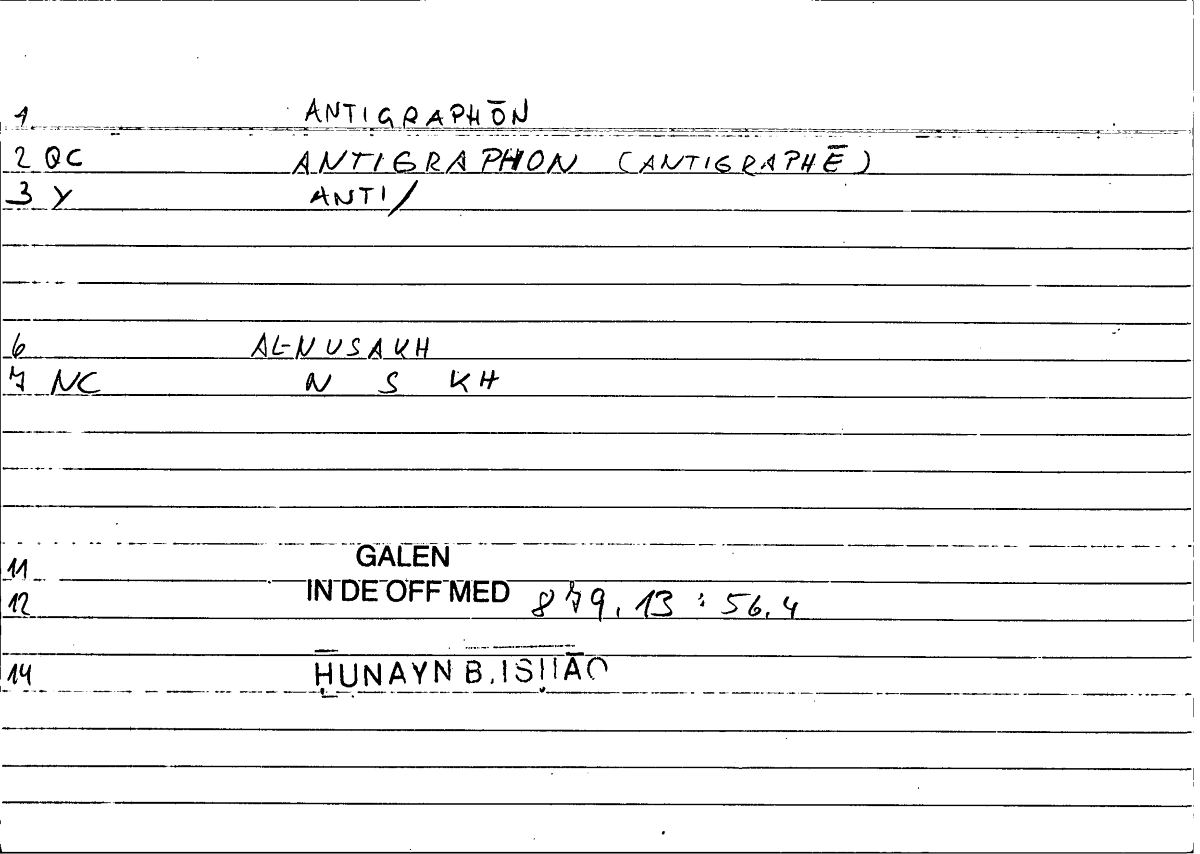 1 ANTIGRAPHŌN
2 QC ANTIGRAPHON (ANTIGRAPHĒ)
3 Y ANTI/
6 AL-NUSAKH
7 NC N S KH
11 GALEN
12 IN DE OFF MED 879.13 : 56.4
14 ḤUNAYN B. ISḤĀQ